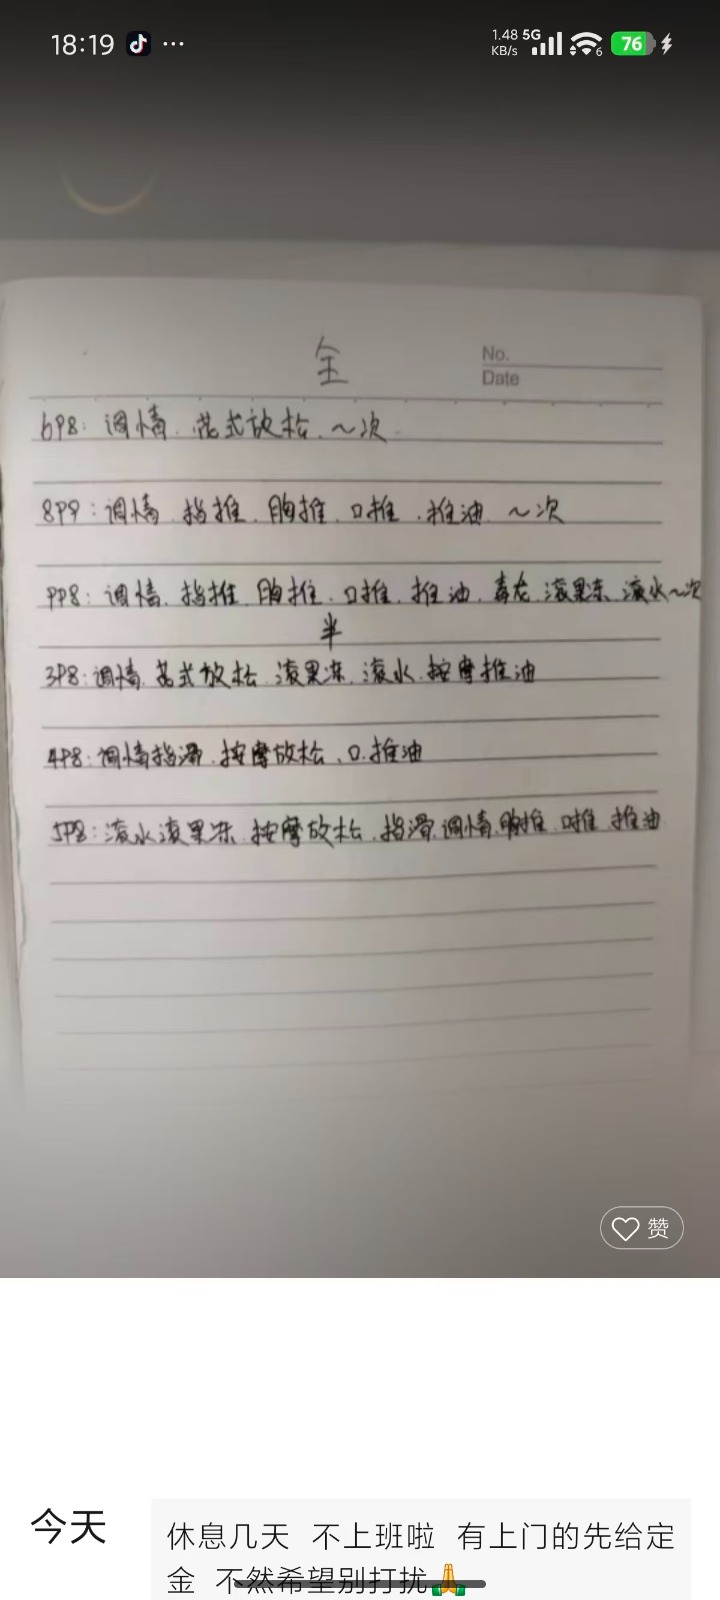 18:19 ... 1.48 KB/s 5G 6 76
全
No.
Date
6P8：调情、花式放松、～次
8P9：调情、指推、胸推、口推、推油、～次
PP8：调情、指推、胸推、口推、推油、毒龙、滚果冻、滚水～次
半
3P8：调情、花式放松、滚果冻、滚水、按摩推油
4P8：调情指滑、按摩放松、口、推油
5P8：滚水滚果冻、按摩放松、指滑、调情、胸推、口推、推油
赞
今天
休息几天 不上班啦 有上门的先给定
金 不然希望别打扰🙏